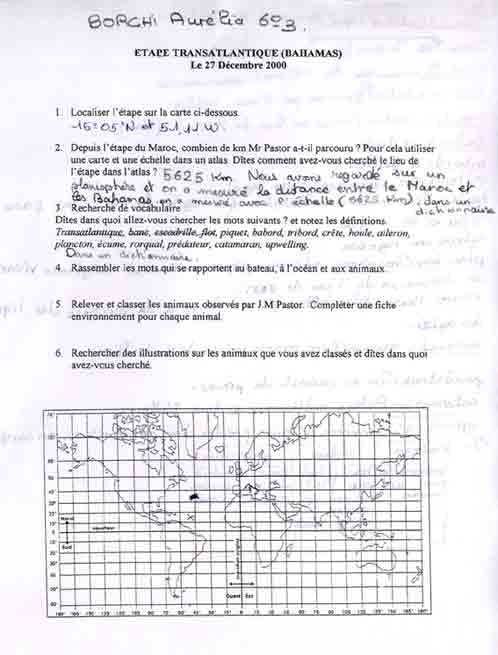 BORCHI Aurélia 6°3.
ETAPE TRANSATLANTIQUE (BAHAMAS)
Le 27 Décembre 2000
1. Localiser l'étape sur la carte ci-dessous.
15°05'N et 51,11 W.
2. Depuis l'étape du Maroc, combien de km Mr Pastor a-t-il parcouru ? Pour cela utiliser
une carte et une échelle dans un atlas. Dîtes comment avez-vous cherché le lieu de
l'étape dans l'atlas ? 5625 km. Nous avons regardé sur un
planisphère et on a mesuré la distance entre le Maroc et
les Bahamas, on a mesuré avec l'échelle (5625 km), dans un
dictionnaire
3. Recherche de vocabulaire
Dîtes dans quoi allez-vous chercher les mots suivants ? et notez les définitions.
Transatlantique, banc, escadrille, flot, piquet, babord, tribord, crête, houle, aileron,
plancton, écume, rorqual, prédateur, catamaran, upwelling.
Dans un dictionnaire.
4. Rassembler les mots qui se rapportent au bateau, à l'océan et aux animaux.
5. Relever et classer les animaux observés par J.M Pastor. Compléter une fiche
environnement pour chaque animal.
6. Rechercher des illustrations sur les animaux que vous avez classés et dîtes dans quoi
avez-vous cherché.
Nord
équateur
Sud
Ouest Est